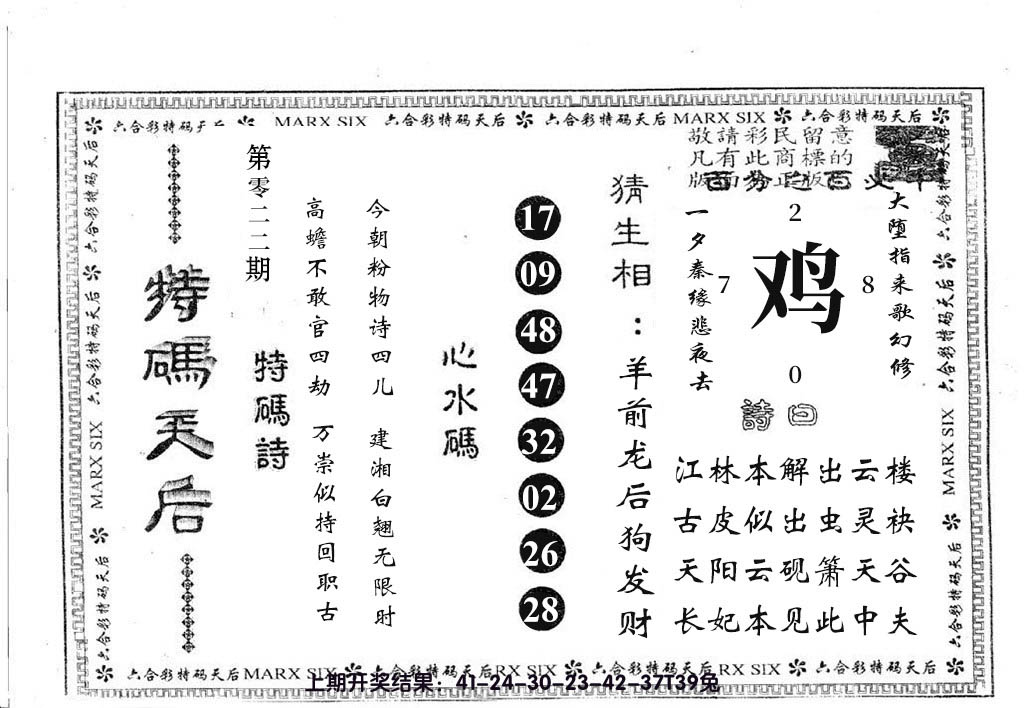 六合彩特码天后 MARX SIX 六合彩特码天后 六合彩特码天后 MARX SIX 六合彩特码天后
敬請彩民留意
凡有此商標的
版面为正版
大堕指来歌幻修
2
7
鸡
8
0
一夕秦缘悲夜去
詩曰
江林本解出云楼
古皮似出虫灵袂
天阳云砚箫天谷
长妃本见此中夫
猜生相：羊前龙后狗发财
17
09
48
47
32
02
26
28
心水碼
今朝粉物诗四儿
建湘白翘无限时
高蟾不敢官四劫
万崇似持回职古
第零二二期
特碼詩
特碼天后
六合彩特码天后 MARX SIX 六合彩特码天后
六合彩特码天后 MARX SIX 六合彩特码天后
六合彩特码天后 MARX SIX 六合彩特码天后 RX SIX 六合彩特码天后 RX SIX 六合彩特码天后
上期开奖结果：41-24-30-23-42-37T39兔